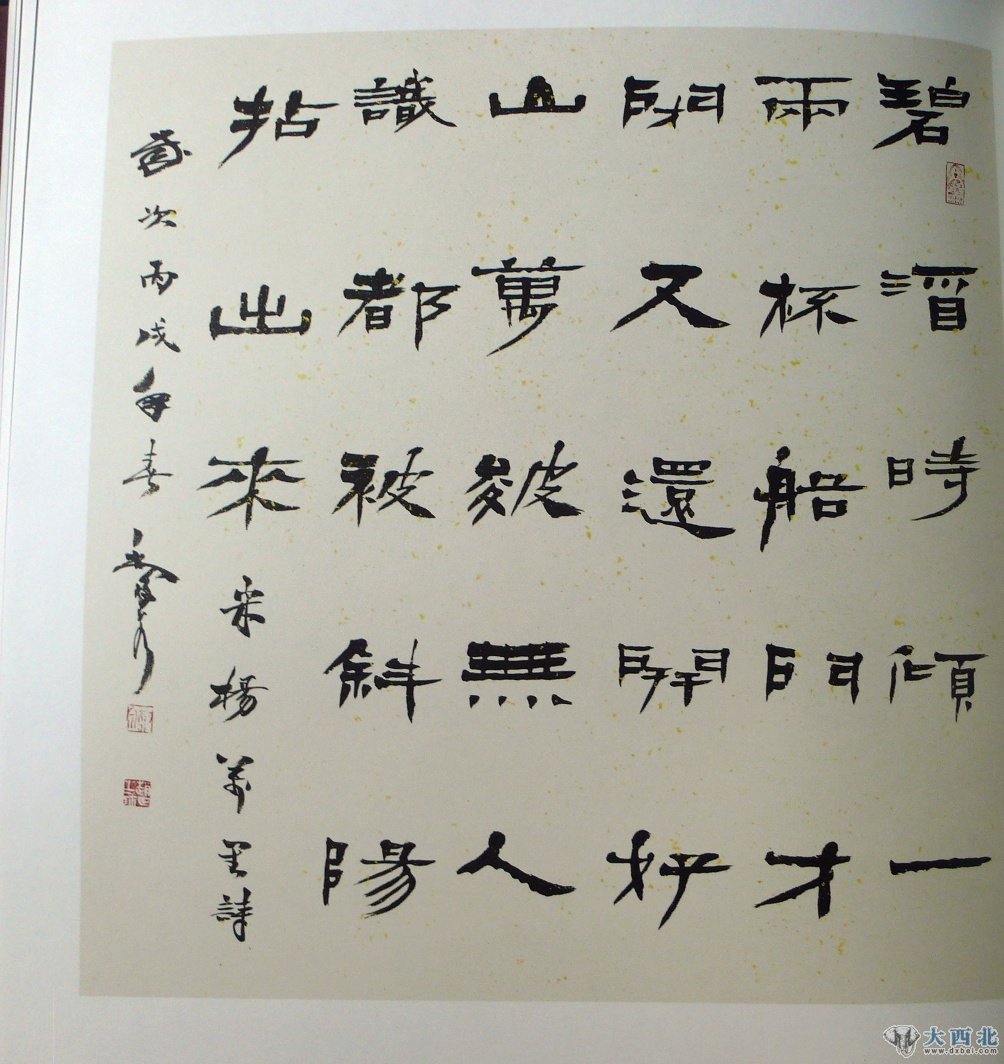 碧酒時傾一
兩杯船門才
閉又還開好
山萬皴無人
識都被斜陽
拈出來宋楊萬里詩
歲次丙戌年春
大西北
www.dxbei.com